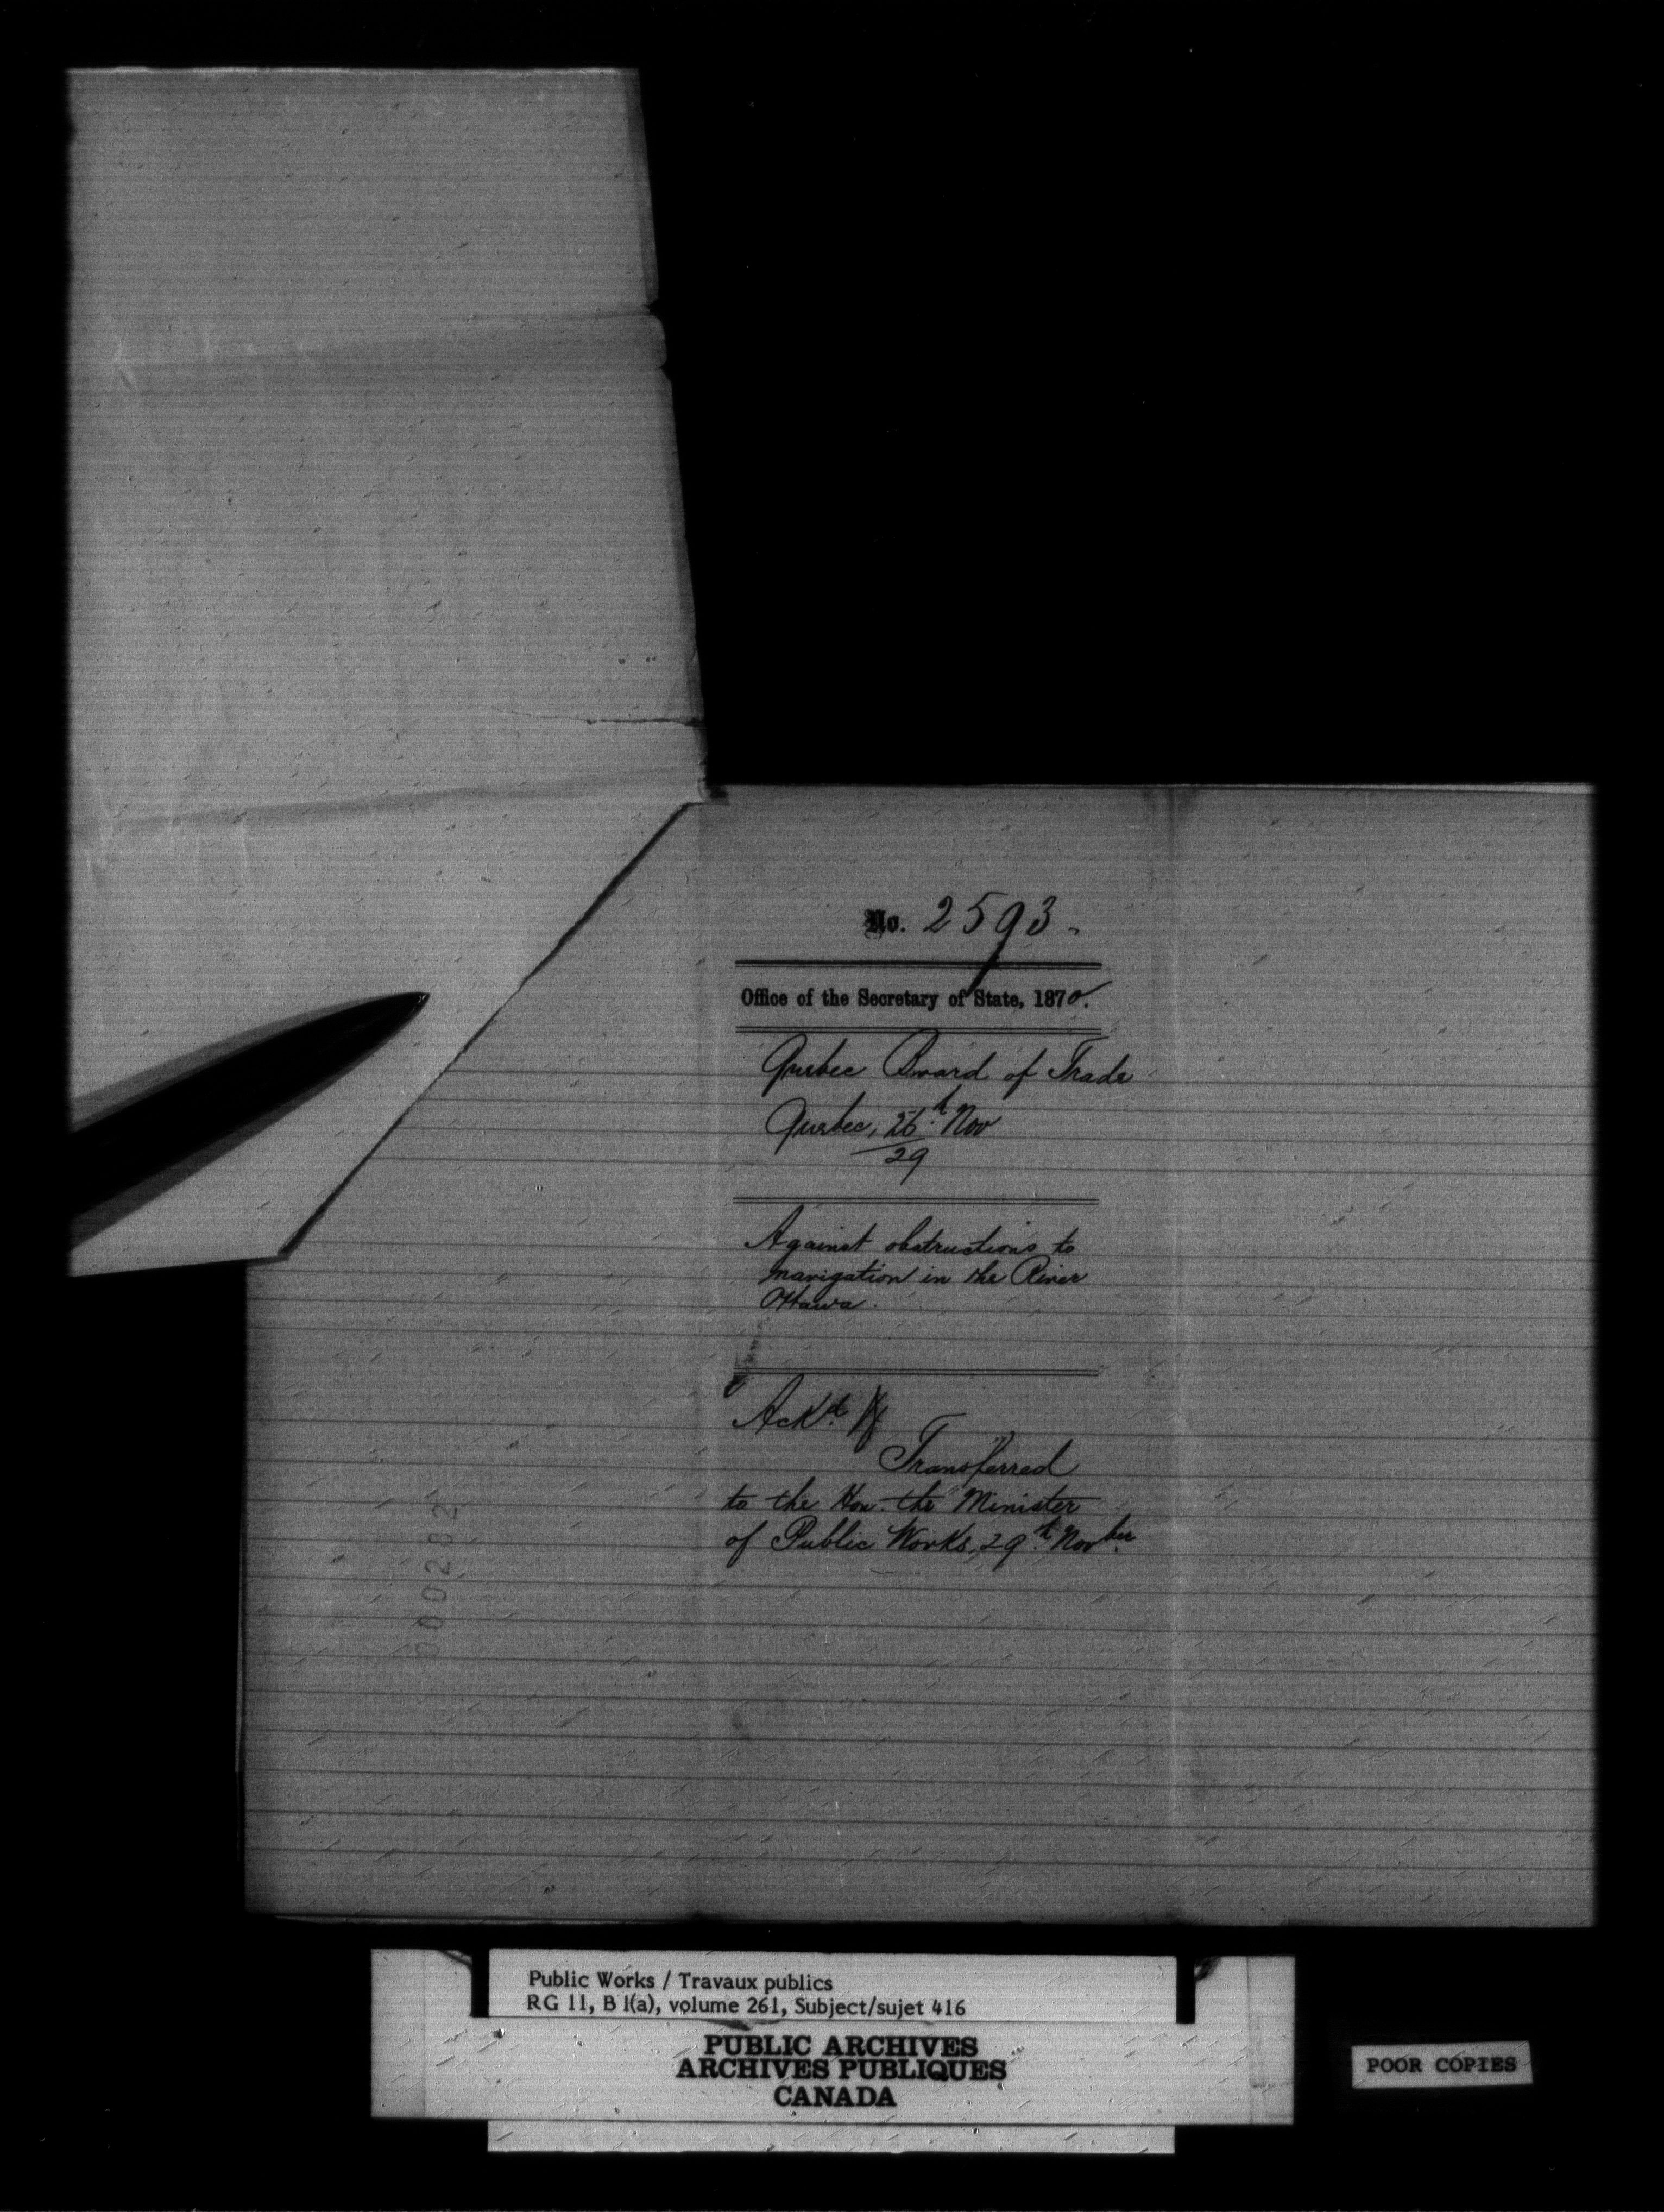 No. 2593.
Office of the Secretary of State, 1870.
Quebec Board of Trade
Quebec, 26th Nov
29
Against obstructions to
navigation in the River
Ottawa.
Ackd.
Transferred
to the Hon. the Minister
of Public Works, 29th Novber.
000282
Public Works / Travaux publics
RG 11, B 1(a), volume 261, Subject/sujet 416
PUBLIC ARCHIVES
ARCHIVES PUBLIQUES
CANADA
POOR COPIES